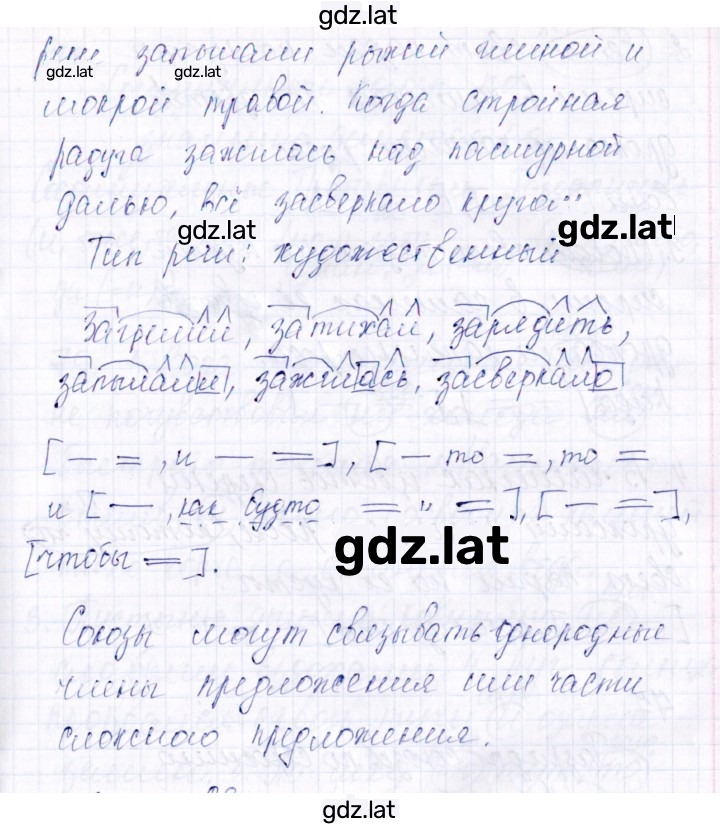 gdz.lat
реке запылали рыжей глиной и
gdz.lat gdz.lat
мокрой травой. Когда стройная
радуга зажглась над пасмурной
далью, всё засверкало кругом"
gdz.lat
Тип речи: художественный
Загремели, затихали, зарядить,
запылали, зажглась, засверкало
[— =, и — =], [— то =, то =
и [—, как будто = и =], [— =],
[чтобы =].
gdz.lat
Союзы могут связывать однородные
члены предложения или части
сложного предложения.
gdz.lat